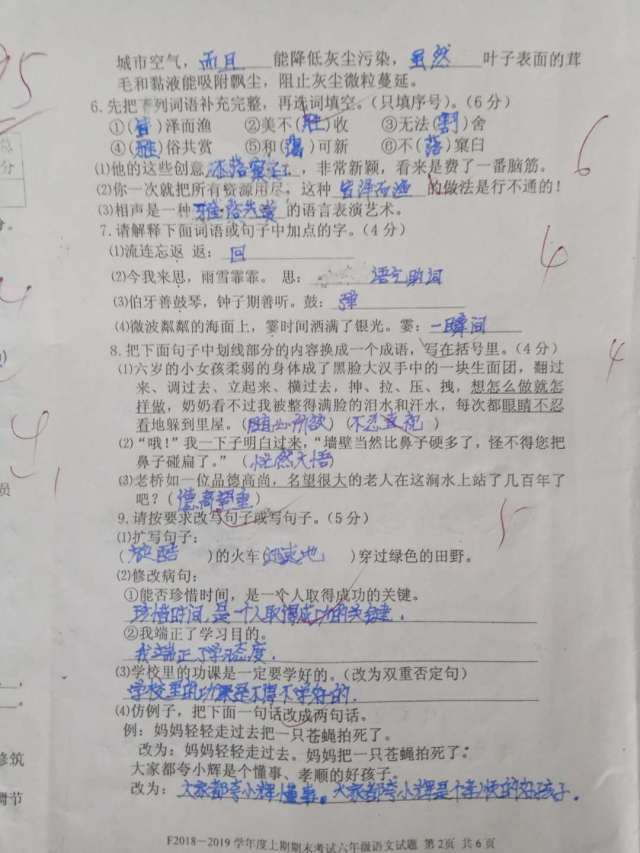 城市空气，而且能降低灰尘污染，虽然叶子表面的茸
毛和黏液能吸附飘尘，阻止灰尘微粒蔓延。
6.先把下列词语补充完整，再选词填空。（只填序号）。（6分）
①（竭）泽而渔 ②美不（胜）收 ③无法（割）舍
④（雅）俗共赏 ⑤和（蔼）可新 ⑥不（落）窠臼
⑴他的这些创意不落窠臼，非常新颖，看来是费了一番脑筋。
⑵你一次就把所有资源用尽，这种竭泽而渔的做法是行不通的！
⑶相声是一种雅俗共赏的语言表演艺术。
7.请解释下面词语或句子中加点的字。（4分）
⑴流连忘返 返：回
⑵今我来思，雨雪霏霏。 思：语气助词
⑶伯牙善鼓琴，钟子期善听。鼓：弹
⑷微波粼粼的海面上，霎时间洒满了银光。霎：一瞬间
8.把下面句子中划线部分的内容换成一个成语，写在括号里。（4分）
⑴六岁的小女孩柔弱的身体成了黑脸大汉手中的一块生面团，翻过
来、调过去、立起来、横过去，抻、拉、压、拽，想怎么做就怎
样做，奶奶看不过我被整得满脸的泪水和汗水，每次都眼睛不忍
看地躲到里屋。（随心所欲）（不忍直视）
⑵“哦！”我一下子明白过来，“墙壁当然比鼻子硬多了，怪不得您把
鼻子碰扁了。”（恍然大悟）
⑶老桥如一位品德高尚，名望很大的老人在这涧水上站了几百年了
吧？（德高望重）
9.请按要求改写句子或写句子。（5分）
⑴扩写句子：
（）的火车（飞速地）穿过绿色的田野。
⑵修改病句：
①能否珍惜时间，是一个人取得成功的关键。
珍惜时间，是一个人取得成功的关键。
②我端正了学习目的。
我端正了学习态度。
⑶学校里的功课是一定要学好的。（改为双重否定句）
学校里的功课是不得不学好的．
⑷仿例子，把下面一句话改成两句话。
例：妈妈轻轻走过去把一只苍蝇拍死了。
改为：妈妈轻轻走过去。妈妈把一只苍蝇拍死了。
大家都夸小辉是个懂事、孝顺的好孩子。
改为：大家都夸小辉懂事。大家都夸小辉是个孝顺的好孩子．
F2018—2019学年度上期期末考试六年级语文试题 第2页 共6页